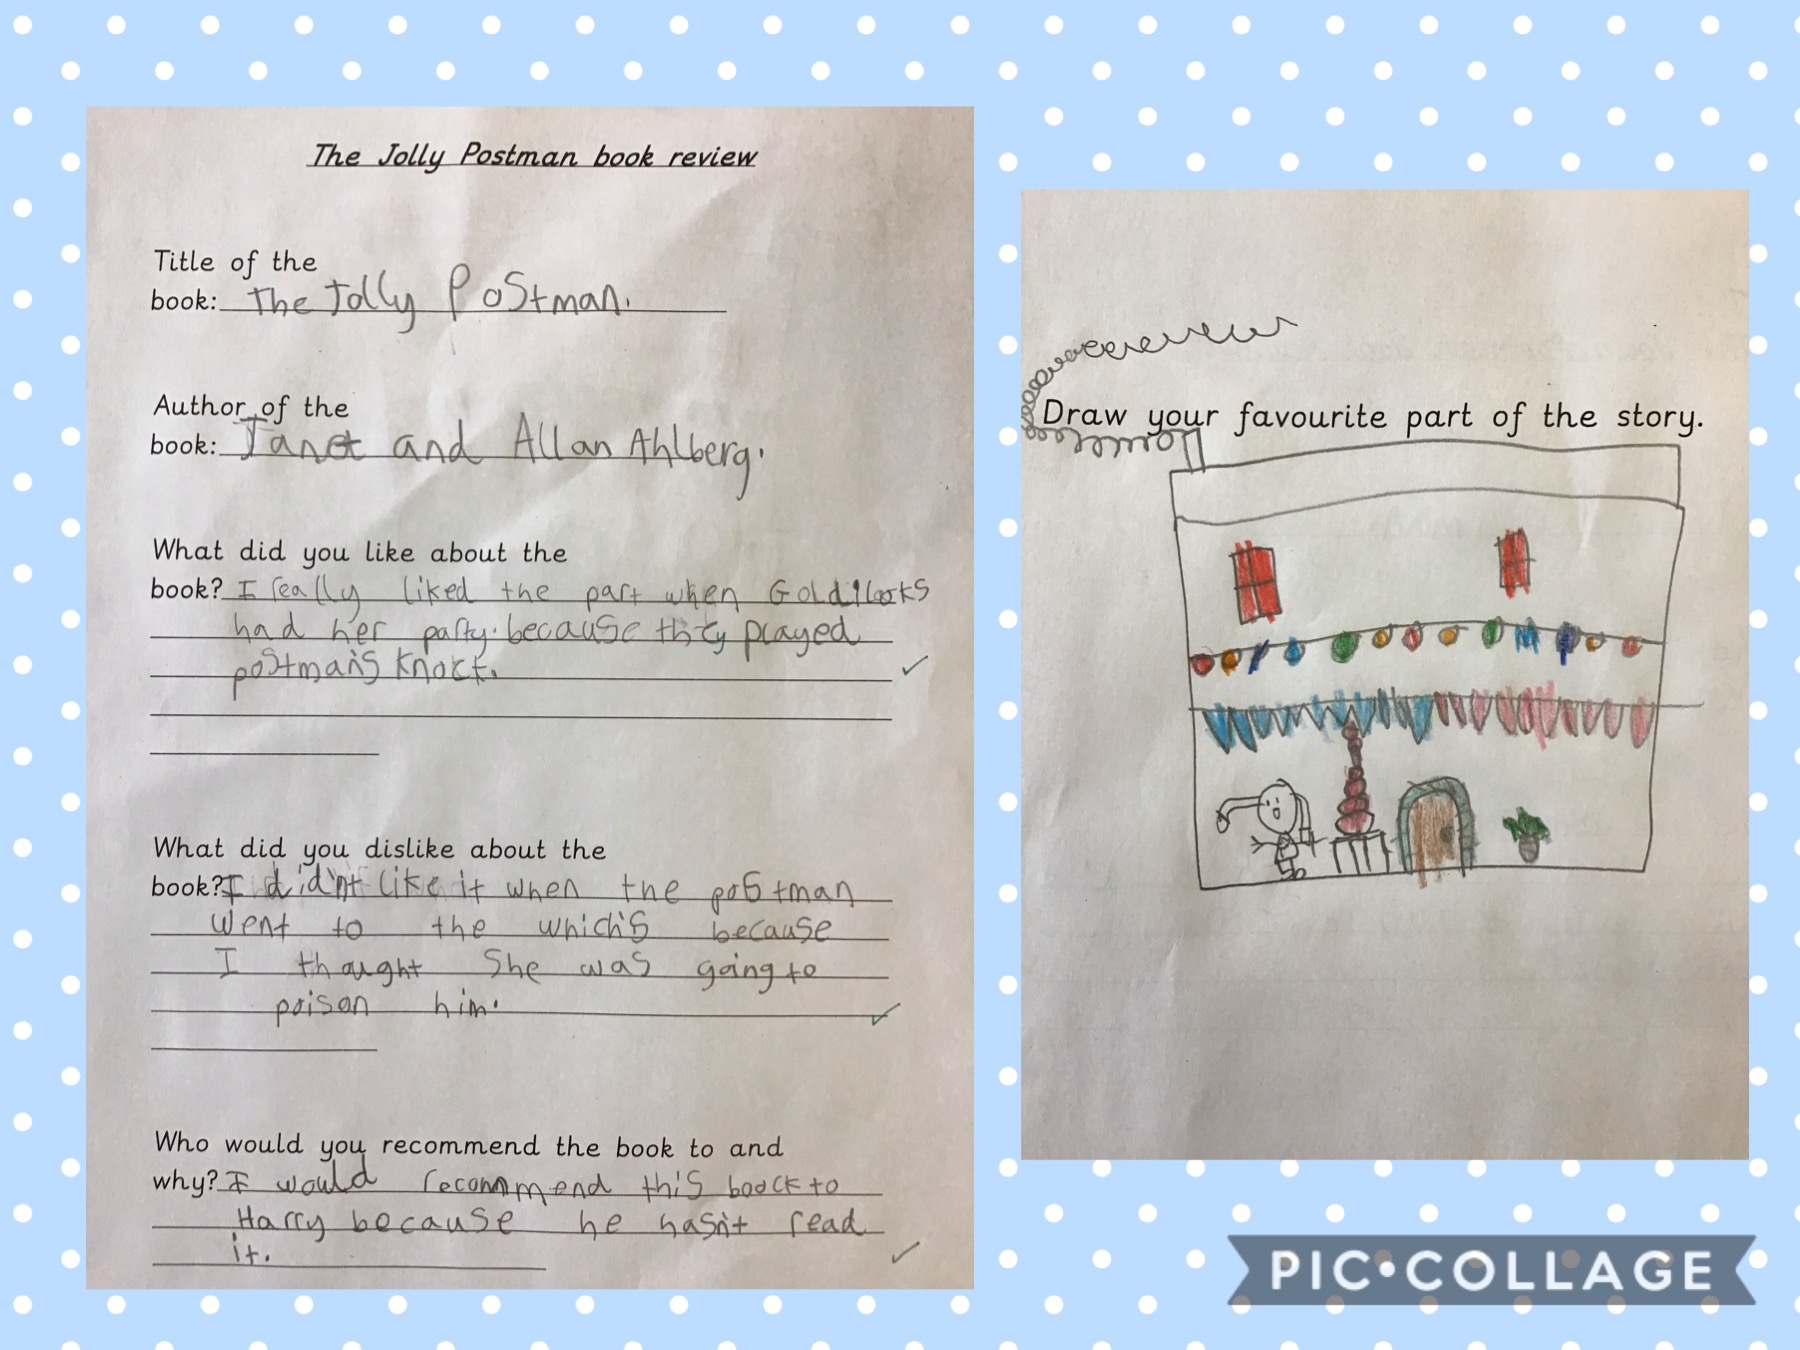 The Jolly Postman book review
Title of the
book: The Jolly Postman.
Author of the
book: Janet and Allan Ahlberg.
What did you like about the
book? I really liked the part when Goldilocks
had her party. because they played
postman's knock.
What did you dislike about the
book? I didn't like it when the postman
went to the which's because
I thought She was going to
poison him.
Who would you recommend the book to and
why? I would recommend this boock to
Harry because he hasn't read
it.
Draw your favourite part of the story.
PIC•COLLAGE